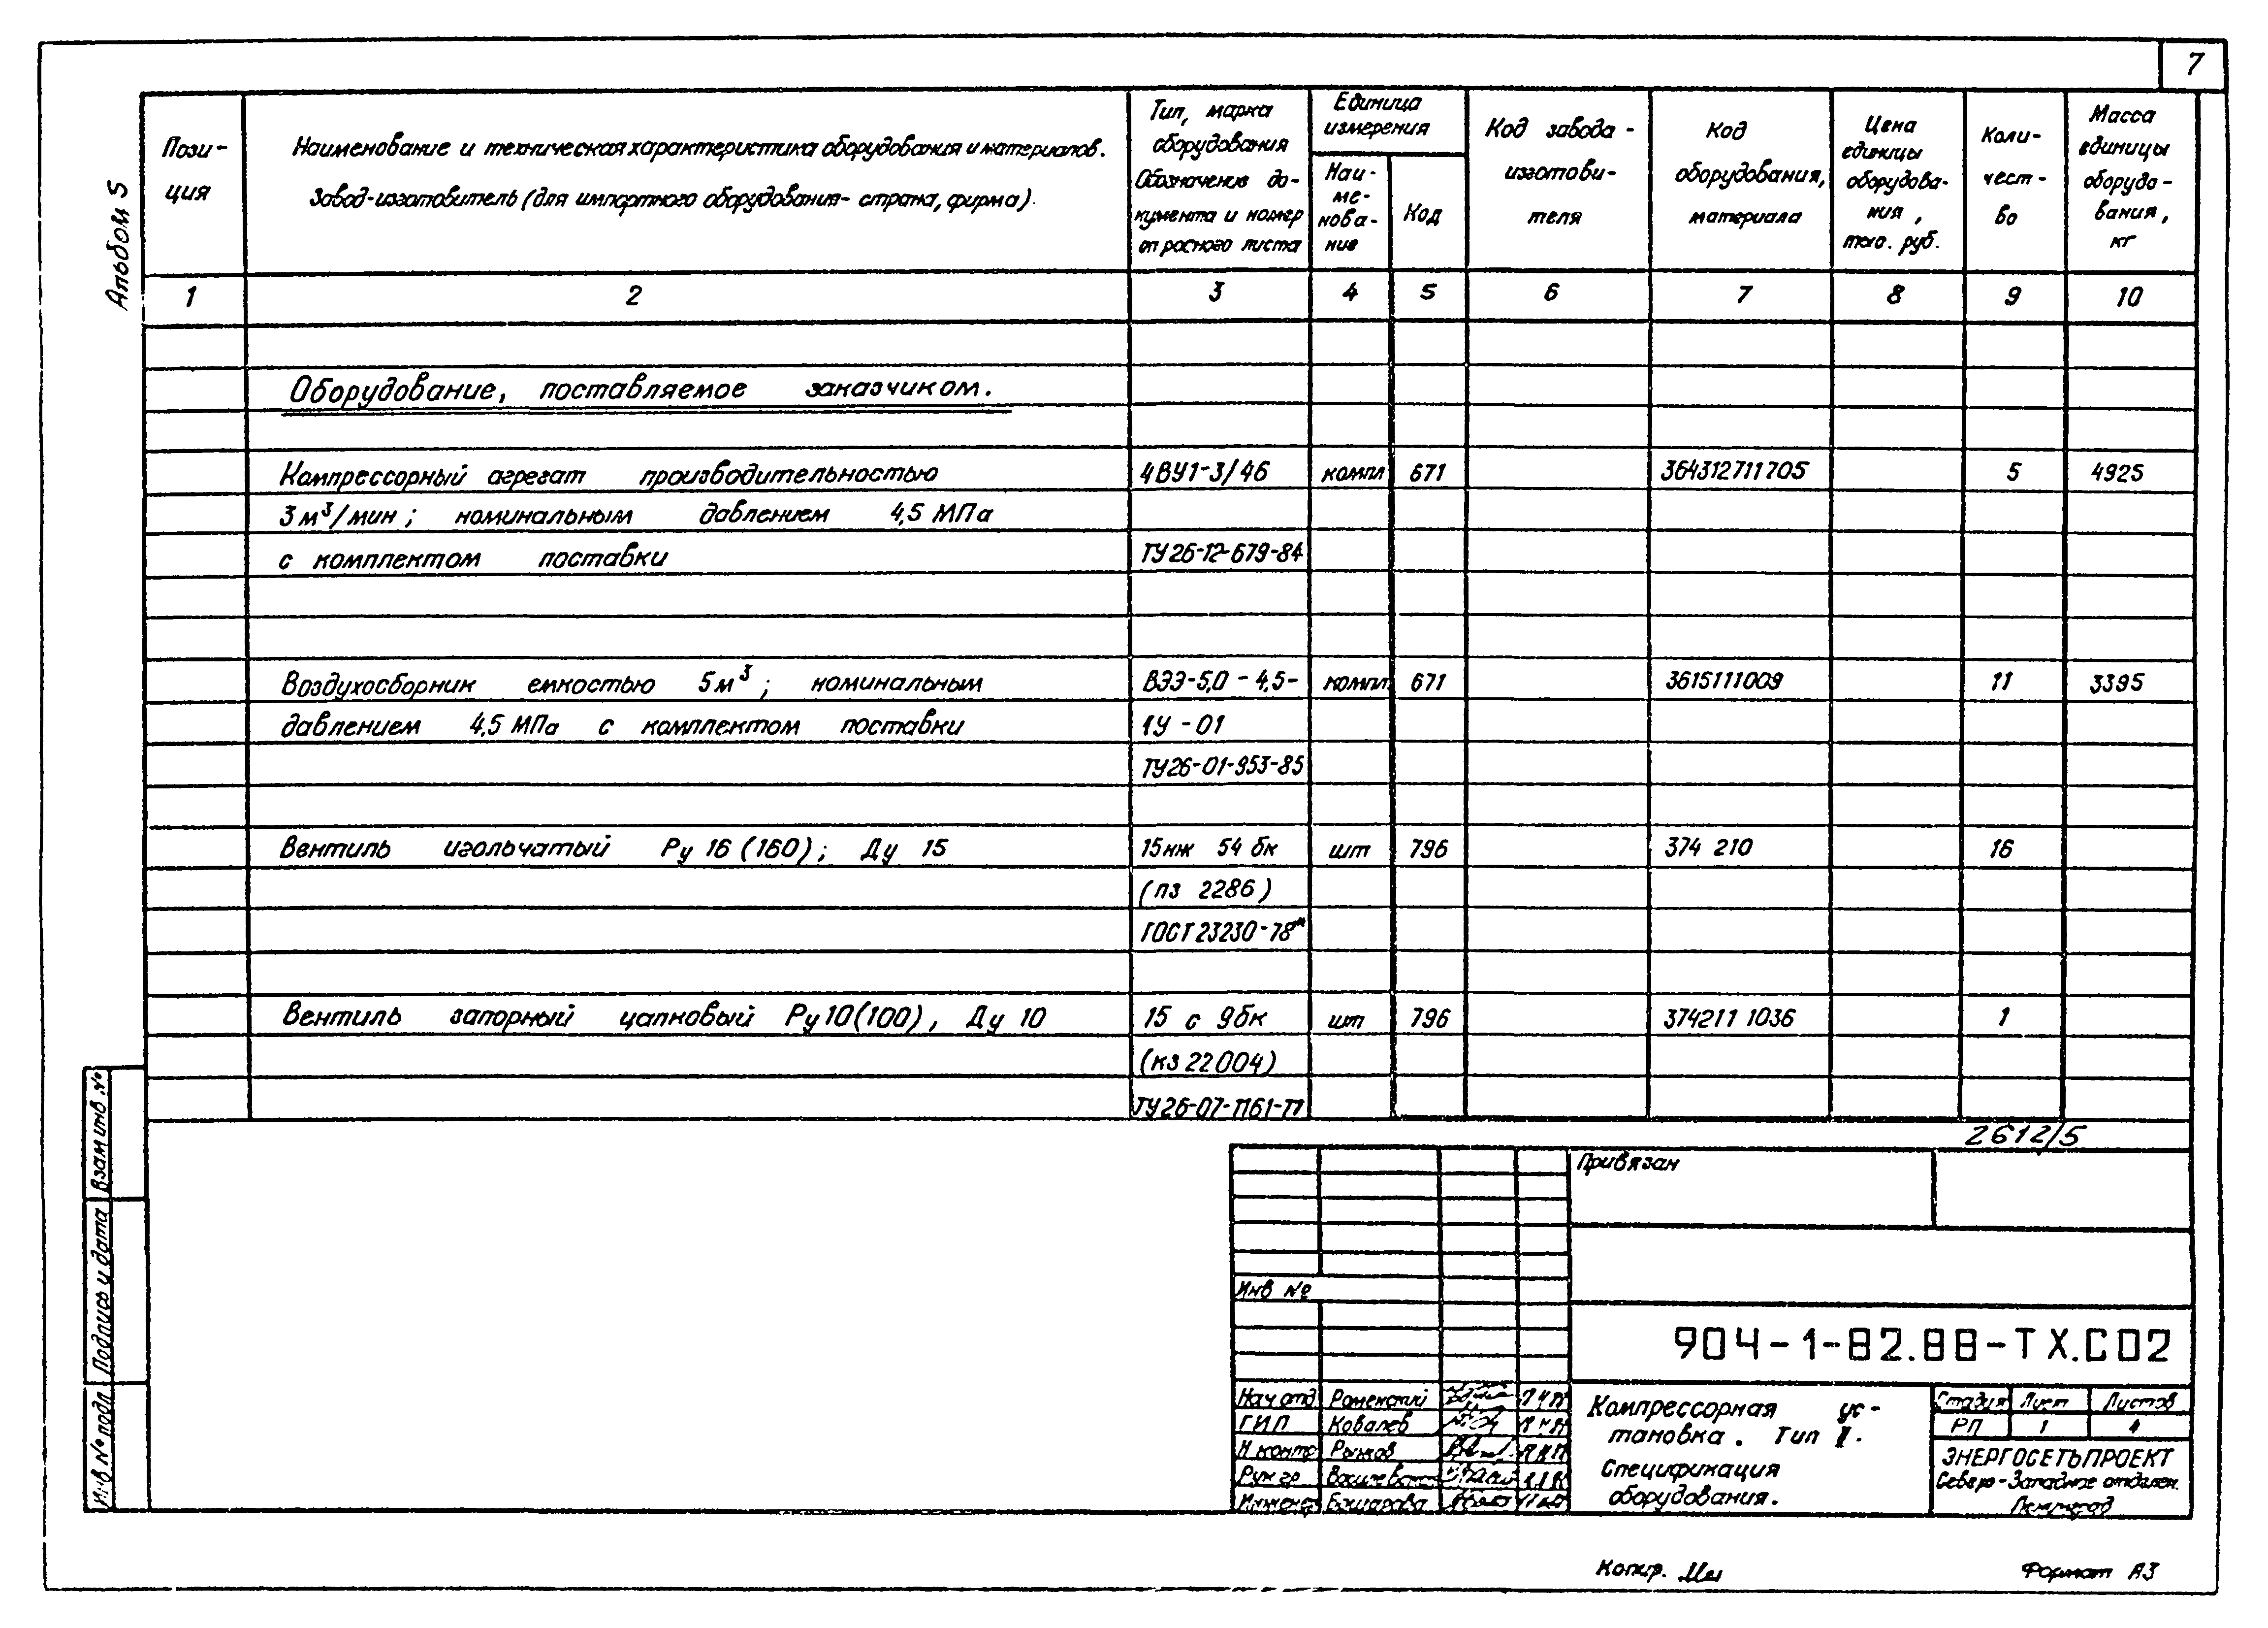 7
Альбом 5
Пози-
ция
Наименование и техническая характеристика оборудования и материалов.
Завод-изготовитель (для импортного оборудования- страна, фирма).
Тип, марка
оборудования
Обозначение до-
кумента и номер
опросного листа
Единица
измерения
Наи-
ме-
нова-
ние
Код
Код завода-
изготови-
теля
Код
оборудования,
материала
Цена
единицы
оборудова-
ния,
тыс. руб.
Коли-
чест-
во
Масса
единицы
оборудо-
вания,
кг
1 2 3 4 5 6 7 8 9 10
Оборудование, поставляемое заказчиком.
Компрессорный агрегат производительностью 4ВУ1-3/46 компл 671 364312711705 5 4925
3м³/мин; номинальным давлением 4,5 МПа
с комплектом поставки ТУ26-12-679-84
Воздухосборник емкостью 5м³; номинальным ВЭЭ-5,0-4,5- компл 671 3615111009 11 3395
давлением 4,5 МПа с комплектом поставки 1У-01
ТУ26-01-953-85
Вентиль игольчатый Ру 16 (160); Ду 15 15нж 54 бк шт 796 374 210 16
(пз 2286)
ГОСТ 23230-78*
Вентиль запорный цапковый Ру10(100), Ду 10 15 с 9бк шт 796 374211 1036 1
(кз 22004)
ТУ26-07-1161-77
2612/5
Привязан
Инв №
904-1-82.88-ТХ.СО2
Нач отд Роменский
ГИП Ковалев
Н контр Рыжов
Рук гр
Инженер Башарова
Компрессорная ус-
тановка. Тип II.
Спецификация
оборудования.
Стадия Лист Листов
РП 1 4
ЭНЕРГОСЕТЬПРОЕКТ
Северо-Западное отделен.
Ленинград
Инв № подл Подпись и дата Взам инв №
Копир.
Формат А3